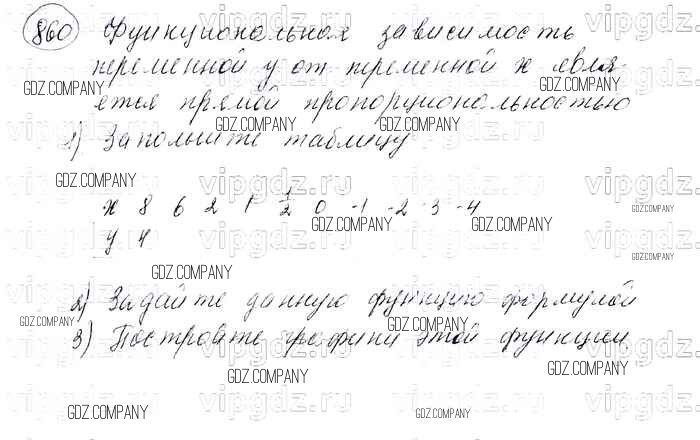 860 Функциональная зависимость
переменной у от переменной х явля-
ется прямой пропорциональностью
1) Заполните таблицу
х 8 6 2 1 1/2 0 -1 -2 -3 -4
у 4
2) Задайте данную функцию формулой
3) Постройте график этой функции
vipgdz.ru
GDZ.COMPANY